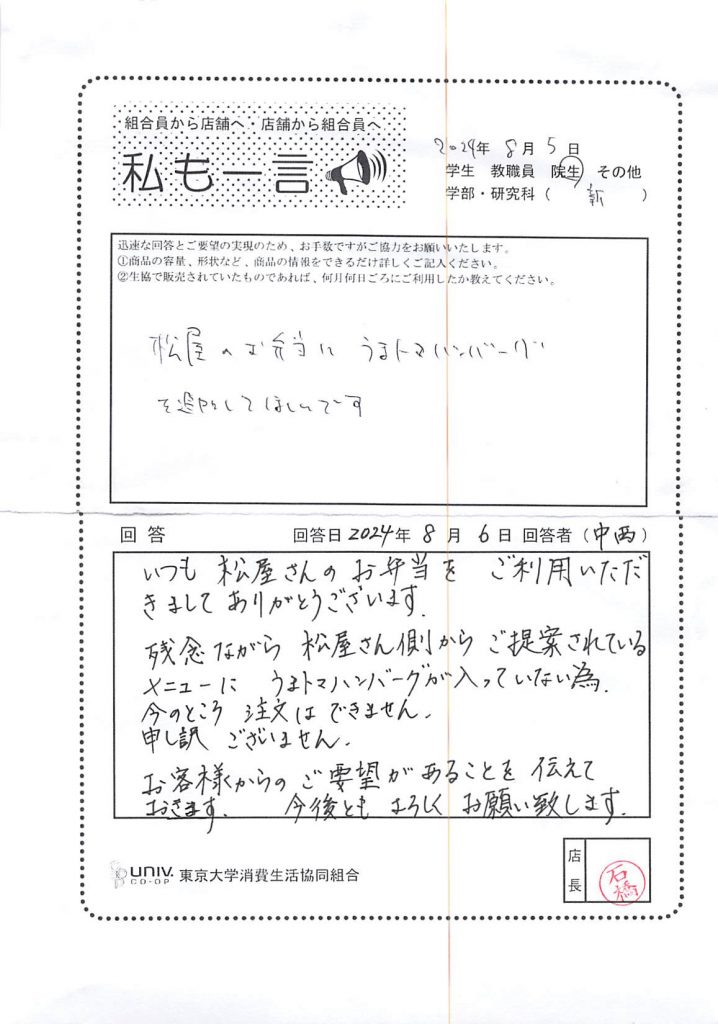 組合員から店舗へ・店舗から組合員へ
私も一言
2024年 8月 5日
学生 教職員 院生 その他
学部・研究科( 新 )
迅速な回答とご要望の実現のため、お手数ですがご協力をお願いいたします。
①商品の容量、形状など、商品の情報をできるだけ詳しくご記入ください。
②生協で販売されていたものであれば、何月何日ごろにご利用したか教えてください。
松屋のお弁当に うまトマハンバーグ
を追加してほしいです
回答 回答日 2024年 8月 6日 回答者(中西)
いつも 松屋さんの お弁当を ご利用いただ
きまして ありがとうございます.
残念ながら 松屋さん側から ご提案されている
メニューに うまトマハンバーグが入っていない為.
今のところ 注文は できません.
申し訳 ございません.
お客様からの ご要望が あることを 伝えて
おきます. 今後とも よろしく お願い致します.
UNIV. CO-OP 東京大学消費生活協同組合
店長
石橋